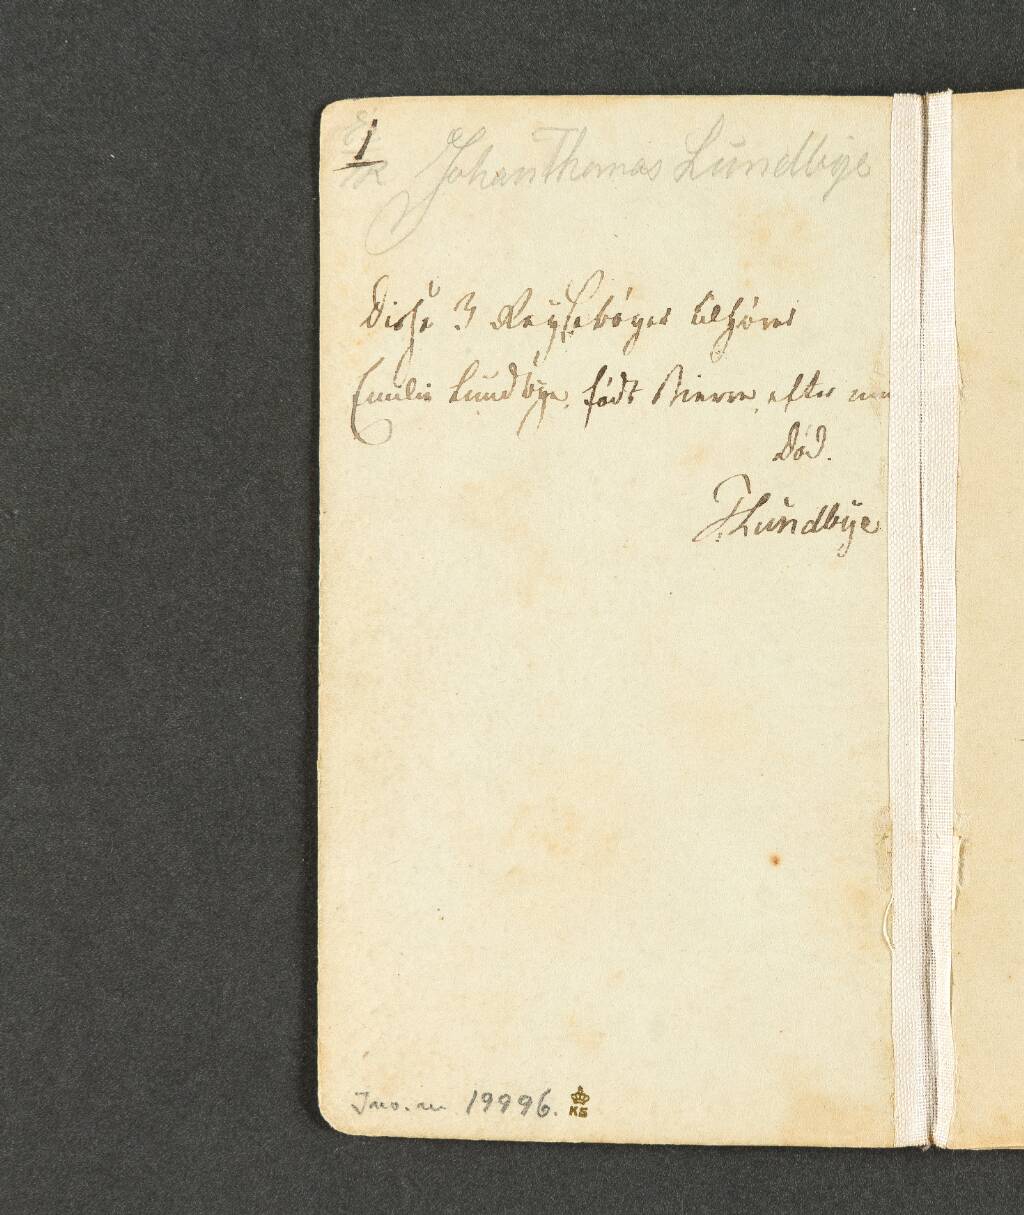 1
Johan Thomas Lundbÿe
Disse 3 Reÿsebøger tilhører
Emilie Lundbÿe, født Bierre, efter min
Død.
TLundbÿe
Inv. nr 19996.
KS